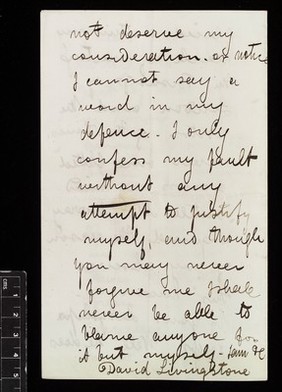 not deserve my
consideration. or notice
I cannot say a
word in my
defence. I only
confess my fault
without any
attempt to justify
myself, and though
you may never
forgive me I shall
never be able to
blame anyone for
it but myself - I am &c
David Livingstone